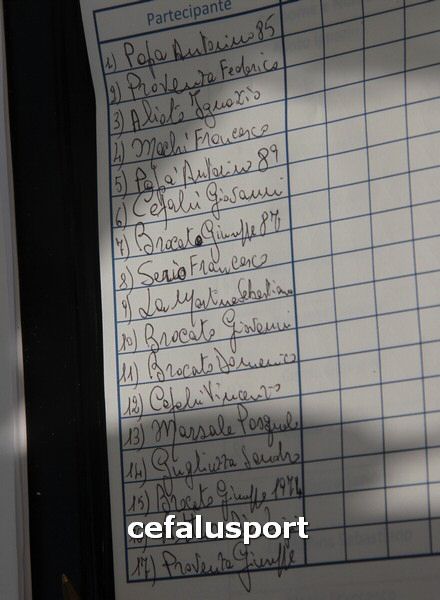 Partecipante
1) Papa Antonino 85
2) Proventa Federico
3) Aliato Ignazio
4) Machi Francesco
5) Papa' Antonino 89
6) Cefalu' Giovanni
7) Brocato Giuseppe 87
8) Serio Francesco
9) La Martina Sebastiano
10) Brocato Giovanni
11) Brocato Domenico
12) Cefalu Vincenzo
13) Marsala Pasquale
14) Gugliuzza Sandro
15) Brocato Giuseppe 1974
cefalusport
17) Proventa Giuseppe